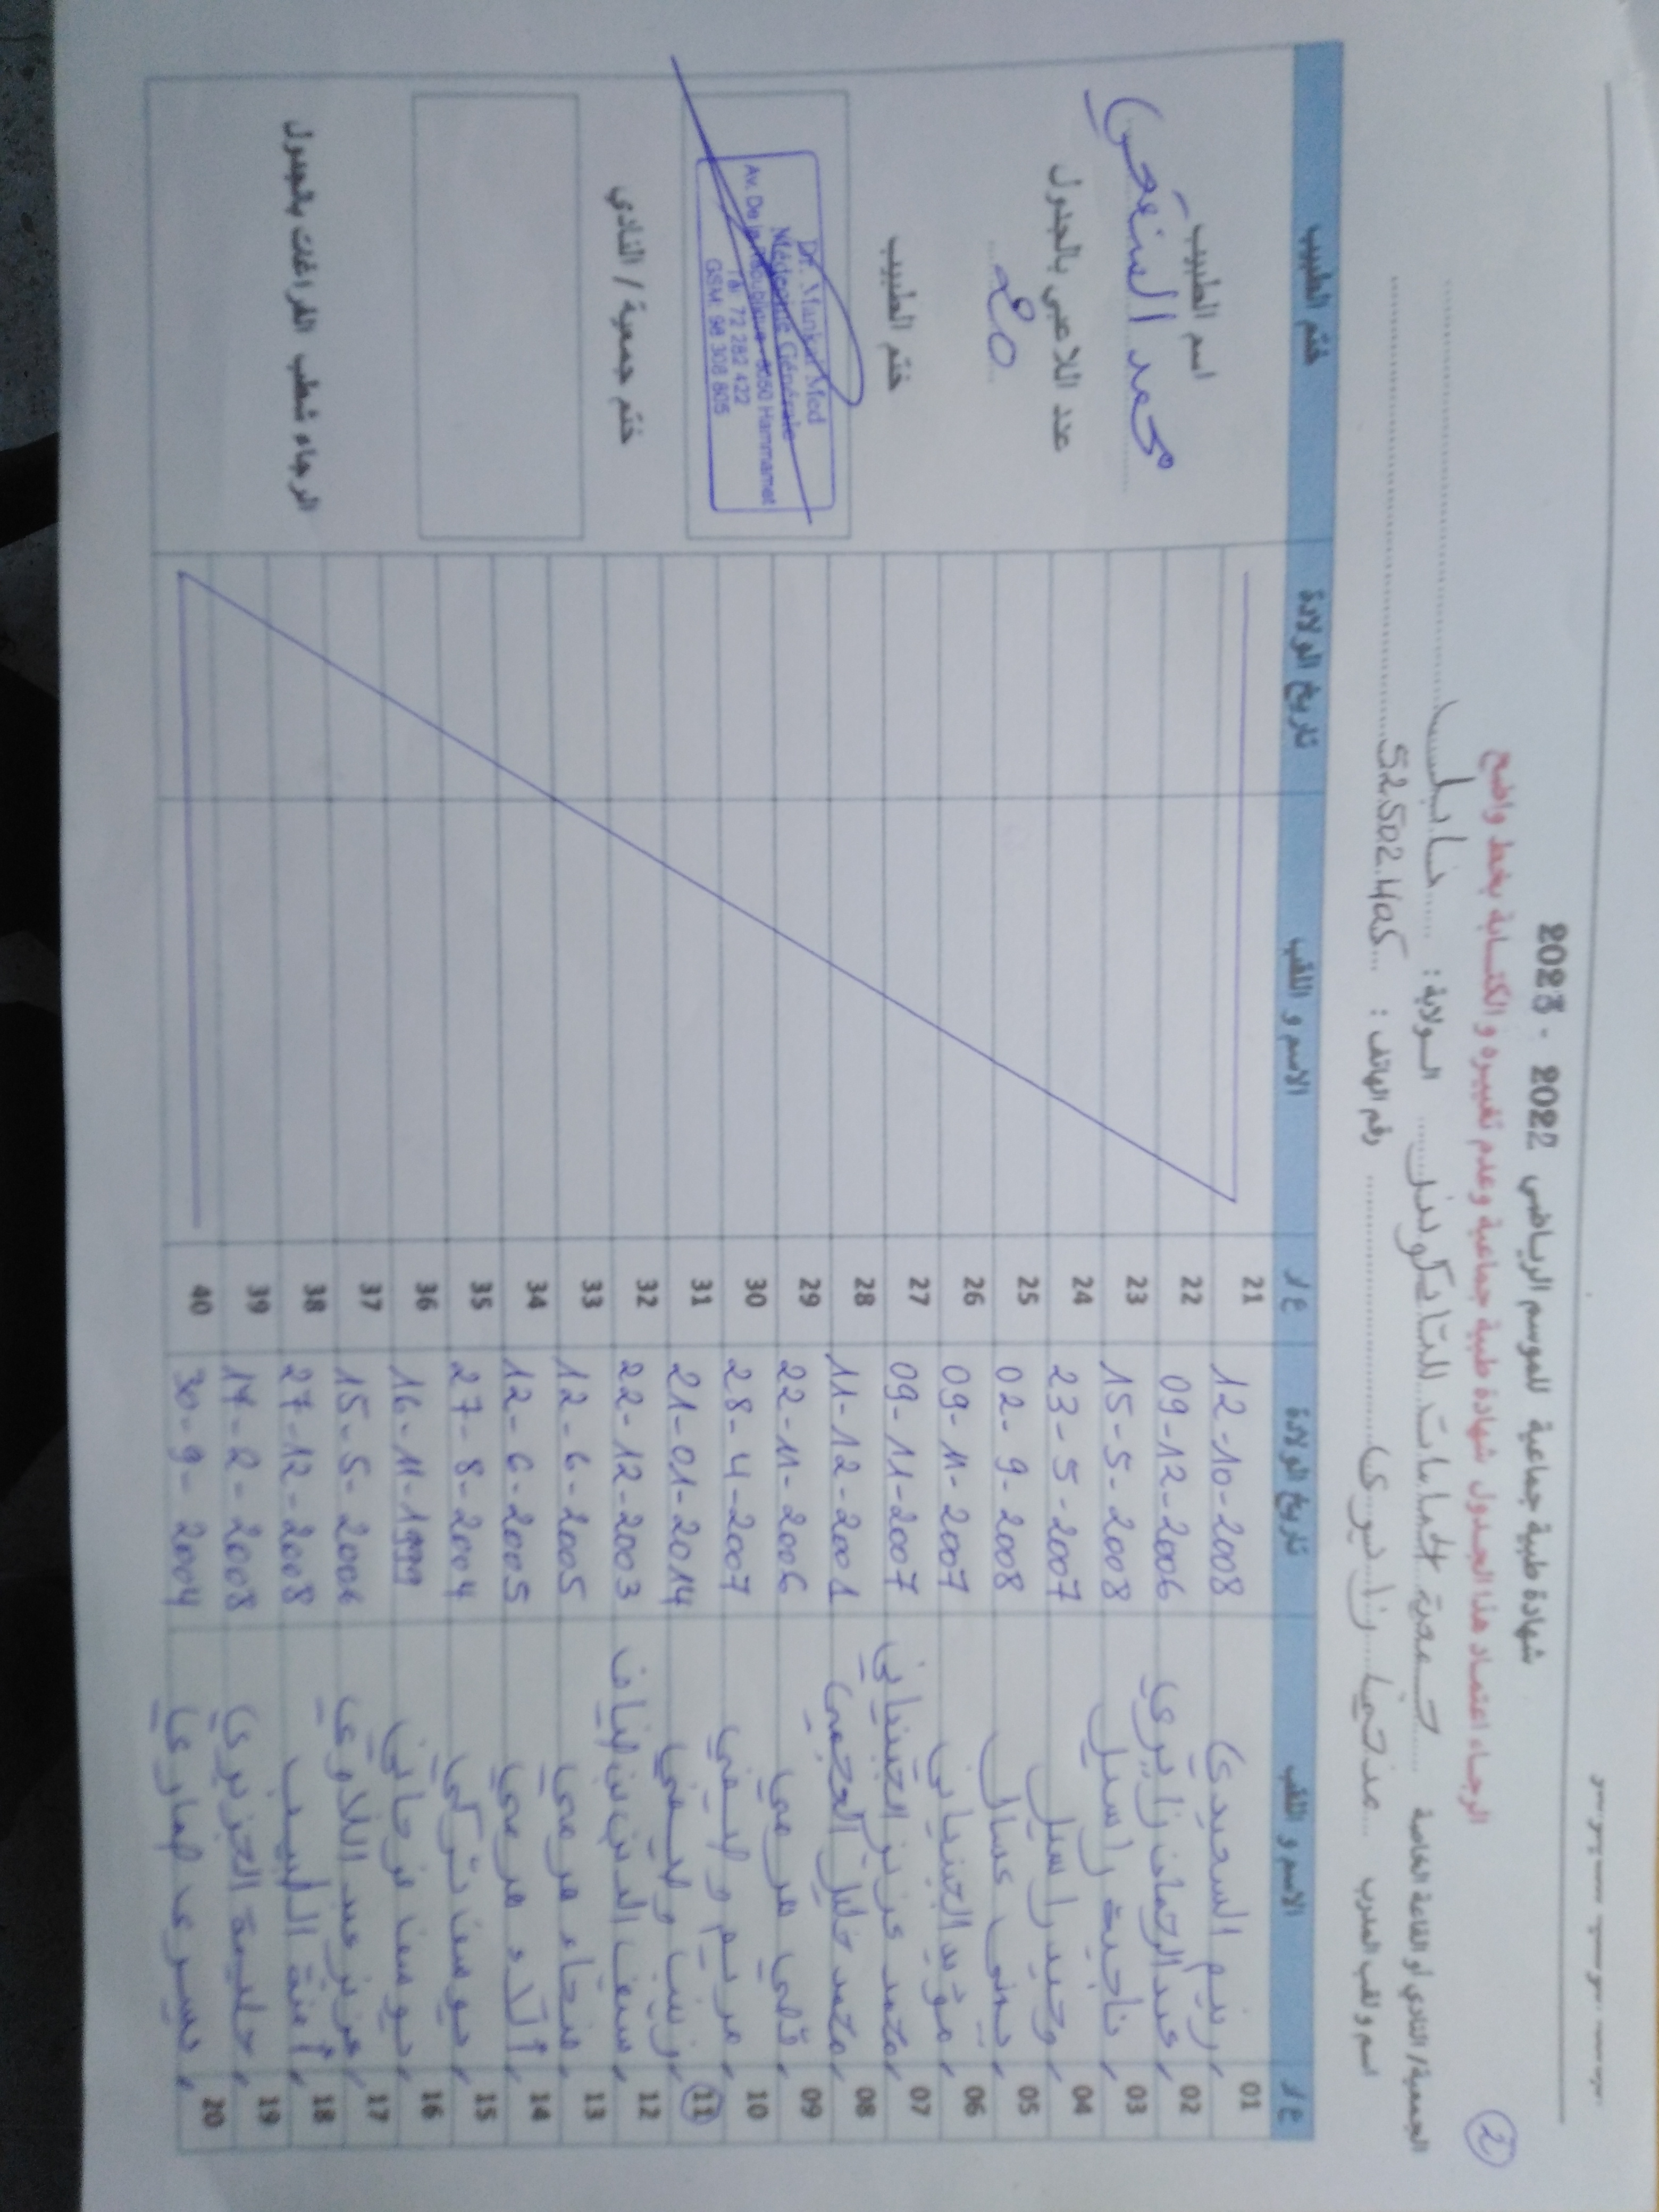 شهادة طبية جماعية للموسم الرياضي 2022 - 2023
الرجاء اعتماد هذا الجدول شهادة طبية جماعية وعدم تغييره و الكتابة بخط واضح
2
الجمعية/ النادي او القاعة الخاصة جمعية الحمامات للتايكوندو الولاية : نابل
اسم و لقب المدرب زايري رقم الهاتف : 52.502.405
ع/ر الاسم و اللقب تاريخ الولادة ع/ر الاسم و اللقب تاريخ الولادة ختم الطبيب
01 ريم السعيدي 12-10-2008 21
02 عبد الرحمان زايري 09-12-2006 22
03 ناجية راسيل 15-5-2008 23
04 وحيد راسيل 23-5-2007 24
05 يمنى عسال 02-9-2008 25
06 مؤيد الجنياني 09-11-2007 26
07 محمد عزيز الجنياني 09-11-2007 27
08 محمد خليل العجمي 11-12-2001 28
09 قصي مرمي 22-11-2006 29
10 مريم وليفي 28-4-2007 30
11 زينب وليفي 21-01-2014 31
12 سيف الدين بن ضياف 22-12-2003 32
13 ضحاء مرمي 12-6-2005 33
14 ألاء مرمي 12-6-2005 34
15 يوسف تركي 27-8-2004 35
16 يوسف فرحاني 16-11-1999 36
17 عزيز عبد اللاوي 15-5-2006 37
18 أمنة الطبيب 27-12-2008 38
19 حليمة الجزيري 17-2-2008 39
20 يسرى عماري 30-9-2004 40
اسم الطبيب
محمد المنقعي
عدد اللاعبي بالجدول
20
ختم الطبيب
Dr. Mankai Med
Médecine Générale
Av. De la République - 8050 Hammamet
Tél: 72 282 422
GSM: 98 308 805
ختم جمعية / النادي
الرجاء شطب الفراغات بالجدول